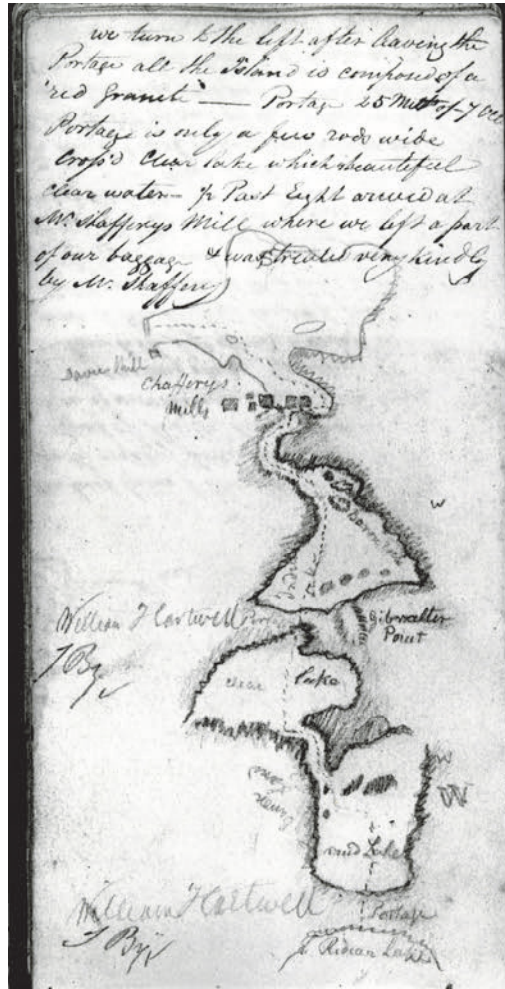 we turn to the left after leaving the
Portage all the Island is composed of a
red Granite — Portage 25 of 7
Portage is only a few rods wide
Crop'd Clear lake which beautiful
clear water — ½ Past Eight arived at
Mr. Shafferys Mill where we left a part
of our baggage & was treated very kindly
by Mr. Shaffery
Chafferys
Mills
Gibaralter
Point
William T Cartwell
T By
Clear Lake
mud Lake
William T Cartwell
T By
Portage
Ridean Lake